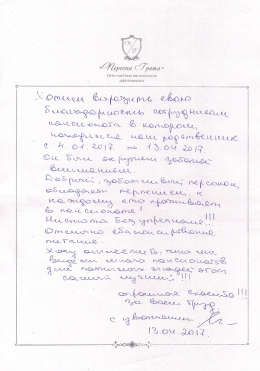 «Перспектива»
Хотим выразить свою
благодарность сотрудникам
пансионата в котором
находился наш родственник
с 4.01.2017 по 13.04.2017.
Он был окружен заботой
вниманием.
Добрый, заботливый персонал,
обладает терпением к
каждому кто проживает
в пансионате!
Чистота безупречная!!!
Отлично сбалансированное
питание.
Хочу отметить, что мы
видели много пансионатов
для пожилых людей этот
самый лучший!!!
огромное спасибо!!!
за Ваш труд
с уважением
13.04.2017.